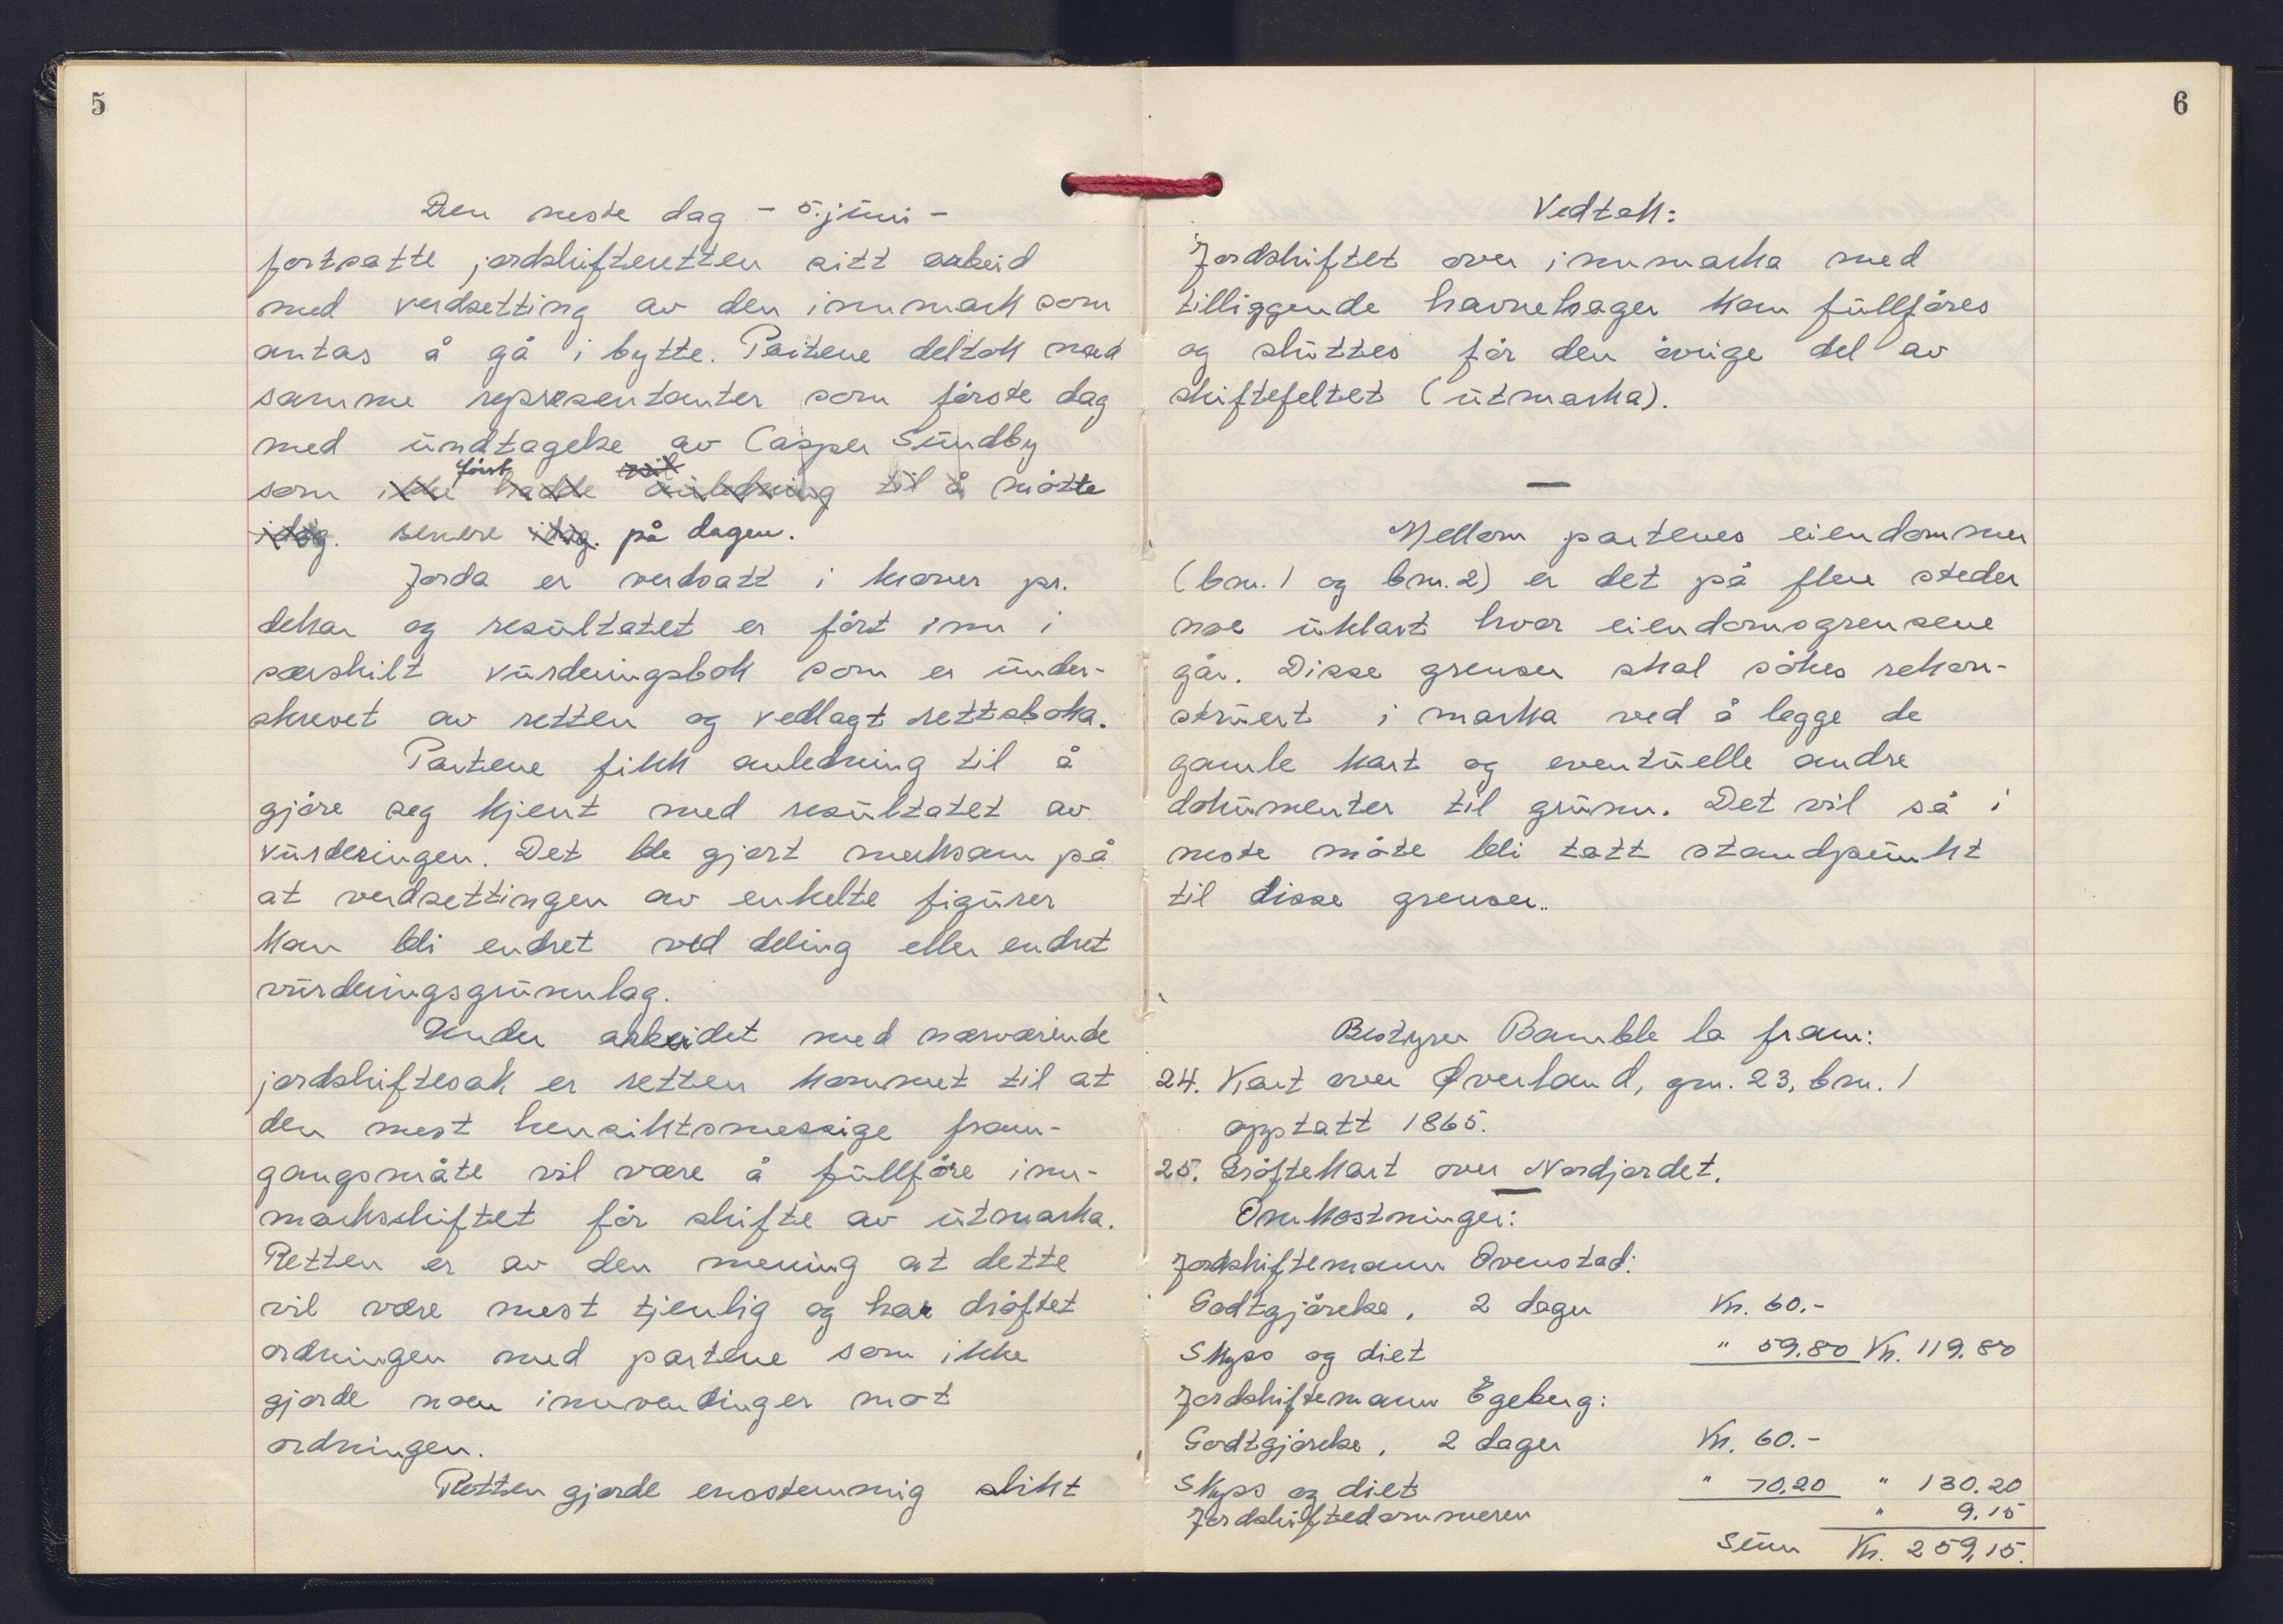 5
Den neste dag - 5. juni -
fortsatte jordskifteretten sitt arbeid
med verdsetting av den innmark som
antas å gå i bytte. Partene deltok med
samme representanter som første dag
med undtagelse av Casper Sundby
som ikke først hadde anledning til å møtte
idag. senere idag. på dagen.
Jorda er verdsatt i kroner pr.
dekar og resultatet er ført inn i
særskilt vurderingsbok som er under-
skrevet av retten og vedlagt rettsboka.
Partene fikk anledning til å
gjøre seg kjent med resultatet av
vurderingen. Det ble gjort merksam på
at verdsettingen av enkelte figurer
kan bli endret ved deling eller endret
vurderingsgrunnlag.
Under arbeidet med nærværende
jordskiftesak er retten kommet til at
den mest hensiktsmessige fram-
gangsmåte vil være å fullføre inn-
markskiftet før skifte av utmarka.
Retten er av den mening at dette
vil være mest tjenlig og har drøftet
ordningen med partene som ikke
gjorde noen innvendinger mot
ordningen.
Retten gjorde enstemmig slikt
6
Vedtak:
Jordskiftet over innmarka med
tilliggende havnehager kan fullføres
og sluttes før den øvrige del av
skiftefeltet (utmarka).
—
Mellom partenes eiendommer
(bnr. 1 og bnr. 2) er det på flere steder
noe uklart hvor eiendomsgrensene
går. Disse grenser skal søkes rekon-
struert i marka ved å legge de
gamle kart og eventuelle andre
dokumenter til grunn. Det vil så i
neste møte bli tatt standpunkt
til disse grenser.
Bestyrer Bamble la fram:
24. Kart over Øverland, gnr. 23, bnr. 1
opptatt 1865.
25. Grøftekart over Nordjordet.
—
Omkostninger:
Jordskiftemann Ovenstad:
Godtgjørelse, 2 dager Kr. 60.-
Skyss og diet " 59.80 Kr. 119.80
Jordskiftemann Egeberg:
Godtgjørelse, 2 dager Kr. 60.-
Skyss og diet " 70.20 " 130.20
Jordskiftedommeren " 9.15
Sum Kr. 259,15.